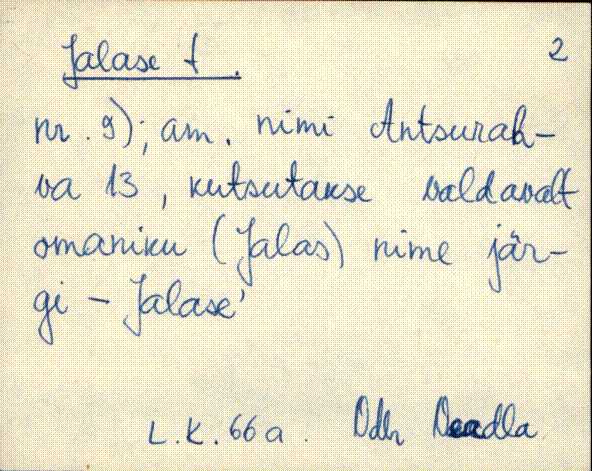 Jalase t. 2
nr. 9); am. nimi Antsurah-
va 13, kutsutakse valdavalt
omaniku (Jalas) nime jär-
gi - Jalase'
L.K. 66a. Odh